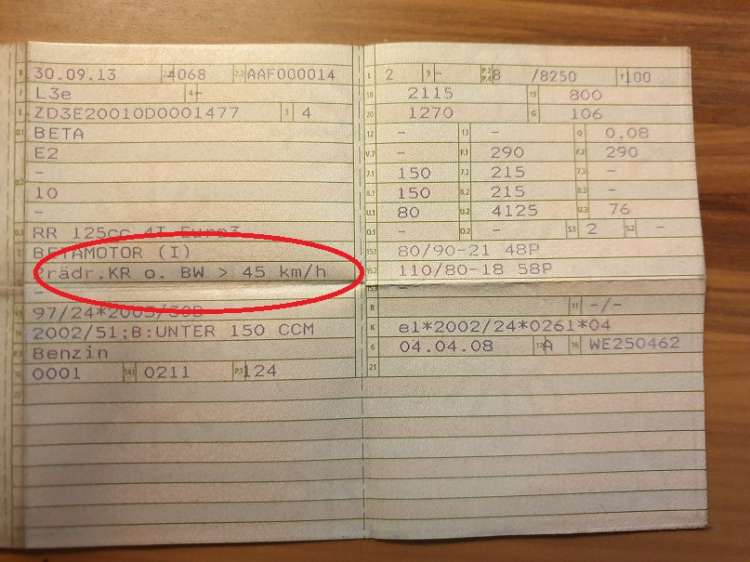 30.09.13 4068 AAF000014
L3e -
ZD3E20010D0001477 4
BETA
E2
-
10
-
RR 125cc 4T Euro3
BETAMOTOR (I)
2rädr.KR o. BW > 45 km/h
-
97/24*2003/30B
2002/51;B:UNTER 150 CCM
Benzin
0001 0211 124
2 - 8 /8250 100
2115 800
1270 106
- - 0.08
- 290 290
150 215 -
150 215 -
80 4125 76
- - 2 -
80/90-21 48P
110/80-18 58P
-
- -/-
e1*2002/24*0261*04
04.04.08 A WE250462